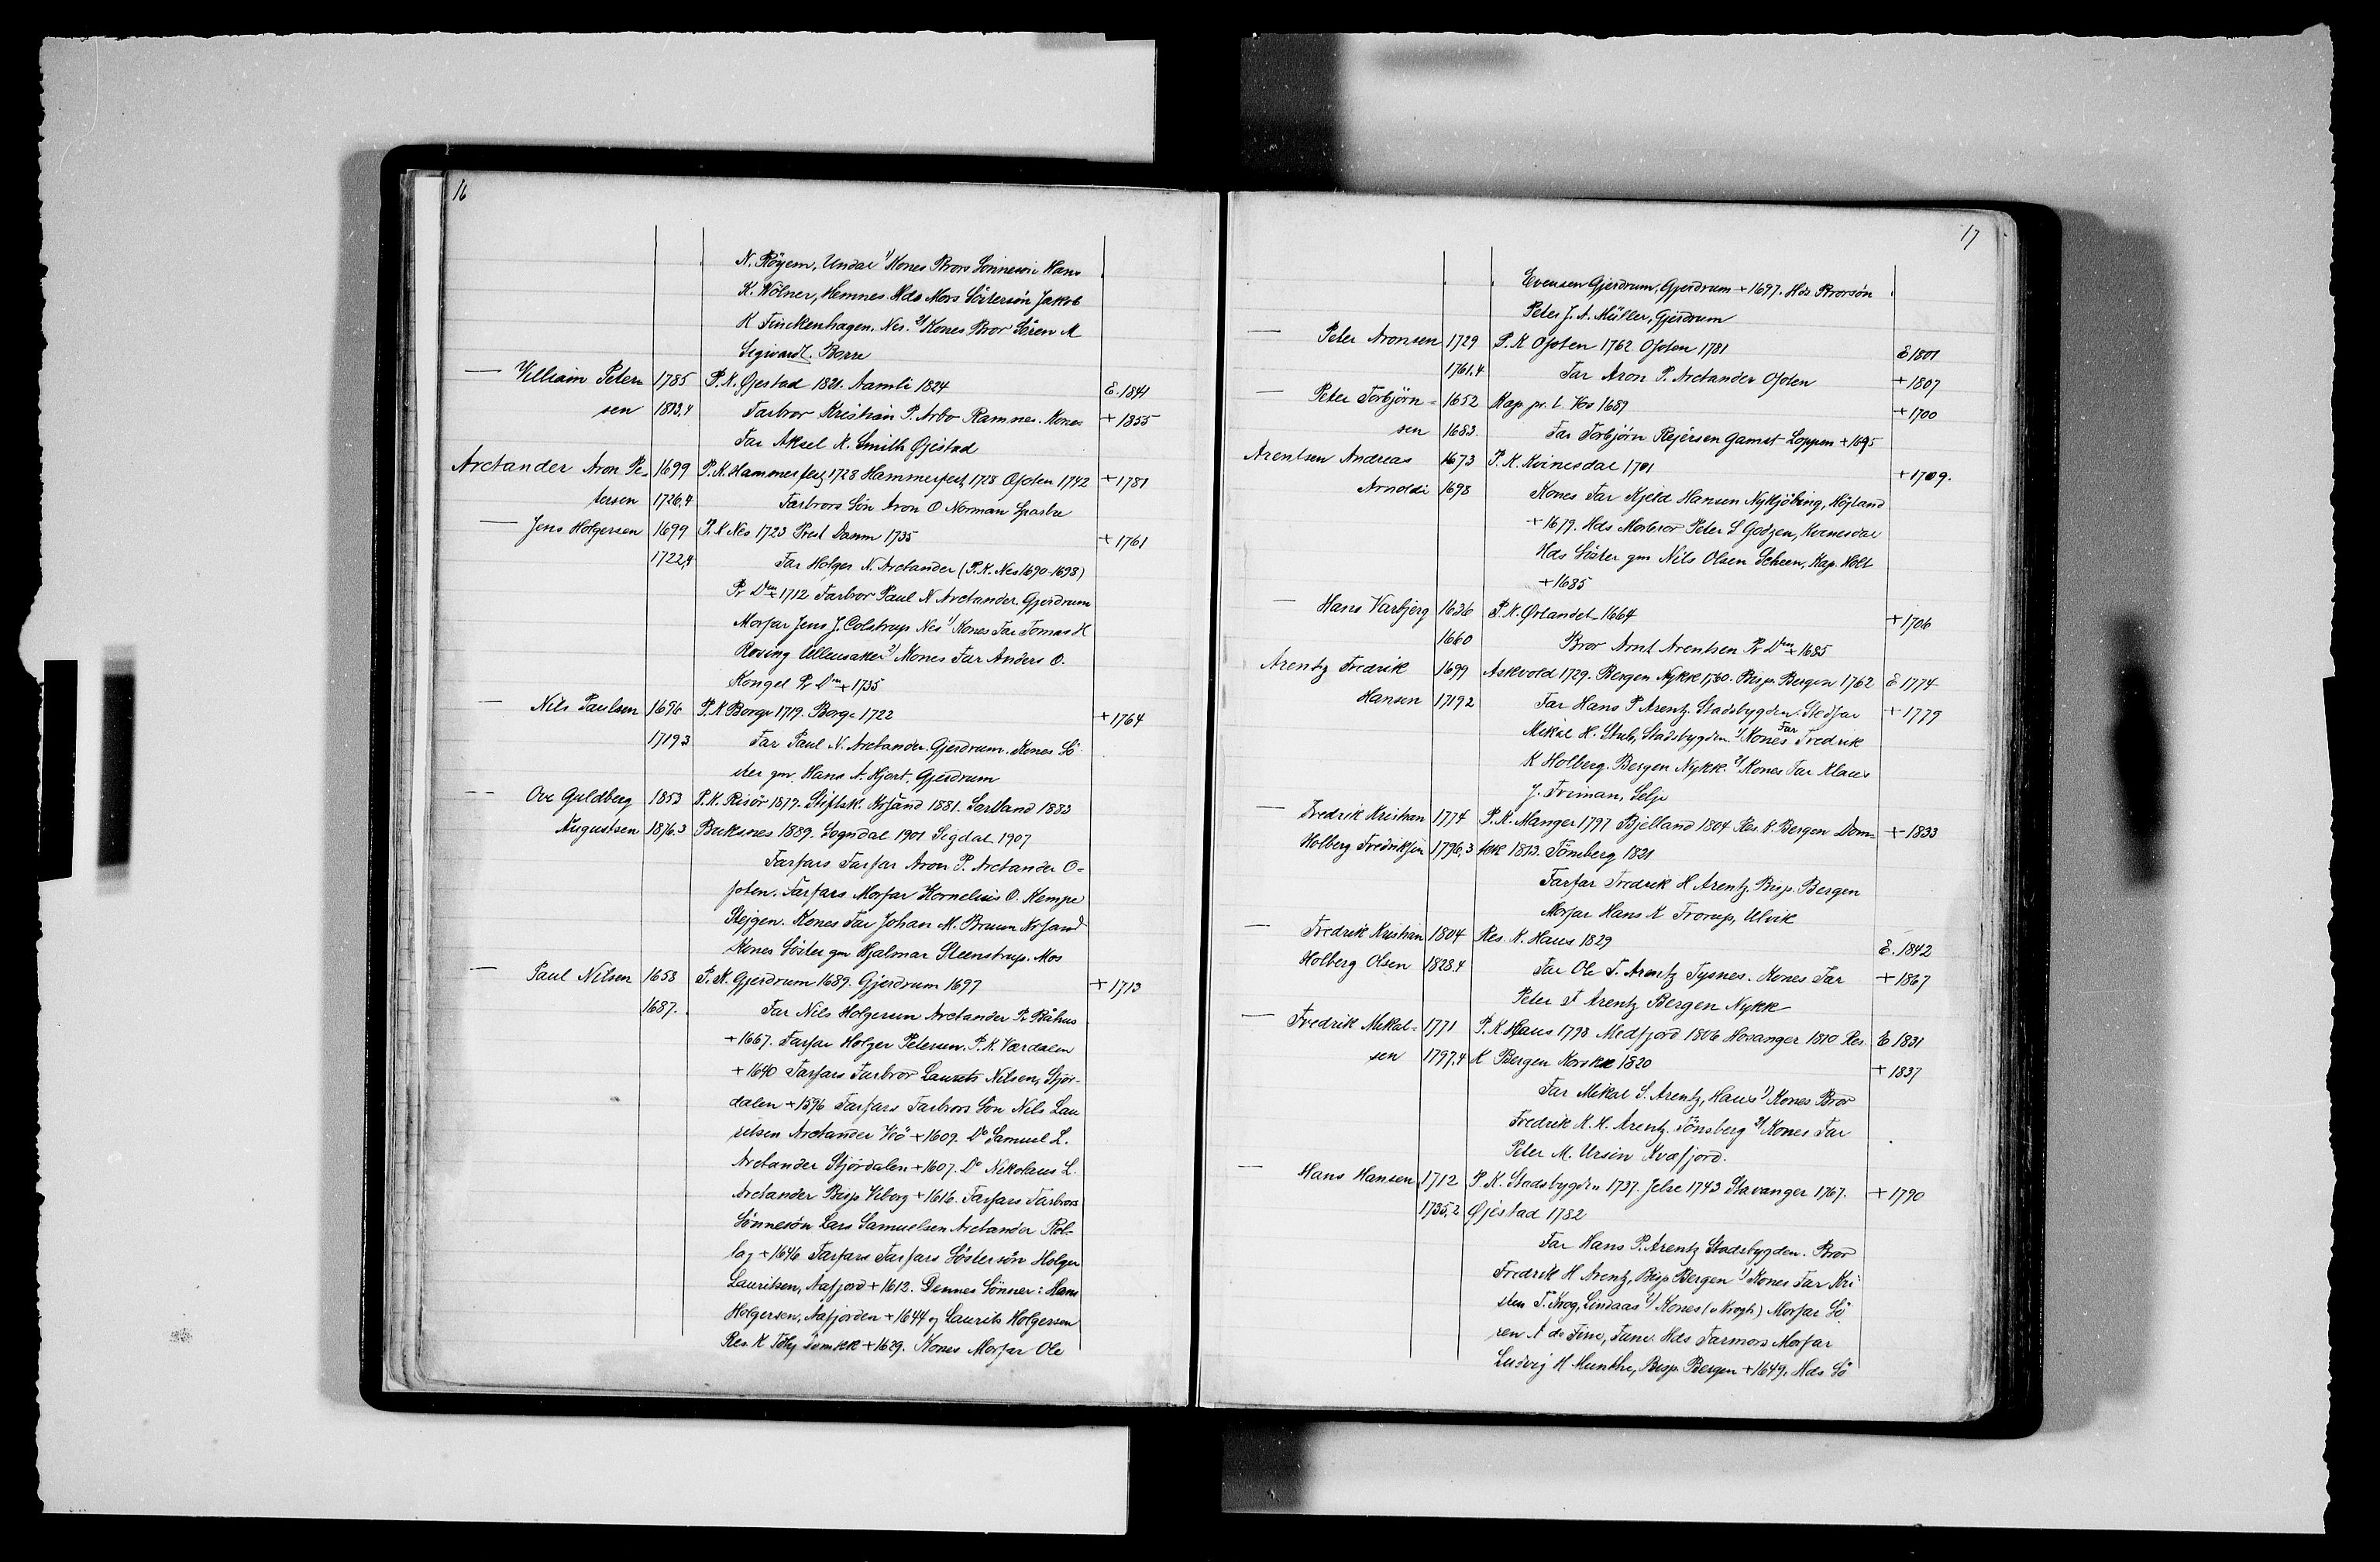 16
N. Röyem, Undal 1) Kones Brors Sönnesön Hans
K. Wölner, Hemnes. Hds Mors Sörtersön Jakob
K Finckenhagen. Nes. 2) Kones Bror Sören M
Segivardt. Borre
— William Peter- 1785 P. K. Øjestad 1821. Aamli 1824 E. 1841
sen 1813,4 Farbror Kristian P. Arbo Ramnes. Kones + 1855
Far Aksel K. Smith Øjestad
Arctander Aron Pe- 1699 P. K. Hammerfest 1728 Hammerfest 1728 Ofoten 1742 + 1781
tersen 1726,4 Farbrors Sön Aron O Norman Sparbu
— Jens Holgersen 1699 P. K Nes 1723 Prest Danm 1735 + 1761
1722,4 Far Holger N. Arctander (P. K. Nes 1690-1698)
Pr Dm + 1712 Farbror Paul N Arctander. Gjerdrum
Morfar Jens J. Colstrup Nes 1) Kones Far Tomas H
Rosing Ullensaker 2) Kones Far Anders O.
Kongel Pr Dm + 1735
— Nils Paulsen 1696 P. K Borge 1719. Borge 1722 + 1764
1719.3 Far Paul N. Arctander. Gjerdrum. Kones Sö-
ster gm. Hans A. Hjort. Gjerdrum
— Ove Guldberg 1853 P. K. Risör 1877. Stiftsk. Krsand 1881. Sortland 1883
Augustsen 1876.3 Buksnes 1889. Sogndal 1901 Sigdal 1907
Farfars Farfar Aron P. Arctander O-
foten. Farfars Morfar Kornelius O. Kempe
Stejgen. Kones Far Johan M. Bruun Krsand
Kones Söster gm Hjalmar Steenstrup. Mos
— Paul Nilsen 1653 P. K. Gjerdrum 1689. Gjerdrum 1697 + 1713
1687. Far Nils Holgersen Arctander Pr Båhus
+ 1667. Farfar Holger Petersen. P. K. Værdalen
+ 1640 Farfars Farbror Laurits Nilsen, Stjör-
dalen + 1596 Farfars Farbrors Sön Nils Lau
ritsen Arctander Veö + 1609. Do Samuel L.
Arctander Stjördalen + 1607. Do Nikolaus L.
Arctander Bisp Viborg + 1616. Farfars Farbrors
Sönnesön Lars Samuelsen Arctander Rol-
lag + 1646 Farfars Farfars Söstersön Holger
Lauritsen, Aafjord + 1612. Dennes Sönner: Hans
Holgersen, Aafjorden + 1644 og Laurits Holgersen
Res. K Tdhj Domkk + 1629. Kones Morfar Ole
17
Evensen Gjerdrum, Gjerdrum + 1697. Hds Brorsön
Peter J. A. Müller, Gjerdrum
— Peter Aronsen 1729 P. K Ofoten 1762 Ofoten 1781 E 1801
1761.4 Far Aron P. Arctander Ofoten + 1807
— Peter Torbjörn- 1652 Kap. pr. l. Vos 1689 + 1700
sen 1683. Far Torbjörn Rejersen Gamst Loppen + 1695
Arentsen Andreas 1673 P. K. Kvinesdal 1701 + 1709.
Arnoldi 1698 Kones Far Kjeld Hansen Nykjöbing, Höjland
+ 1679. Hds Morbror Peter S Godzen, Kvinesdal
Hds Söster gm Nils Olsen Scheen, Kap. Holt
+ 1685
— Hans Varbjerg 1636 P. K. Ørlandet 1664 + 1706
1660 Bror Arnt Arentsen Pr Dm + 1685
Arentz Fredrik 1699 Askvold 1729. Bergen Nykk 1760. Bisp. Bergen 1762 E 1774
Hansen 1719.2 Far Hans P Arentz. Stadsbygden. Stedfar + 1779
Mikal H. Stub, Stadsbygden. 1) Kones Far Fredrik
K Holberg. Bergen Nykk. 2) Kones Far Klaus
J. Friman, Selje
— Fredrik Kristian 1774 P. K. Manger 1797 Bjelland 1804 Res. K. Bergen Dom- + 1833
Holberg Fredriksen 1796,3 kk 1813. Tönsberg 1821
Farfar Fredrik H Arentz. Bisp. Bergen
Morfar Hans K Trorup, Ulvik
— Fredrik Kristian 1804 Res. K. Haus 1829 E. 1842
Holberg Olsen 1828.4 Far Ole F. Arentz Tysnes. Kones Far + 1867
Peter F Arentz Bergen Nykk
— Fredrik Mikal- 1771 P. K Haus 1798 Medfjord 1806 Hosanger 1810 Res. E 1831
sen 1797.4 K Bergen Korskk 1820 + 1837
Far Mikal S. Arentz, Haus 1) Kones Bror
Fredrik K. H. Arentz. Tönsberg 2) Kones Far
Peter M. Ursin Kvæfjord.
— Hans Hansen 1712 P. K. Stadsbygden 1737. Jelse 1743 Stavanger 1767. + 1790
1735.2 Øjestad 1782
Far Hans P. Arentz Stadsbygden. Bror
Fredrik H Arentz, Bisp Bergen 1) Kones Far Kri-
sten T. Krog, Lindaas 2) Kones (v Krogh) Morfar Sö
ren A de Fine, Fane. Hds Farmors Morfar
Ludvig H Munthe, Bisp. Bergen + 1649. Hds Sö